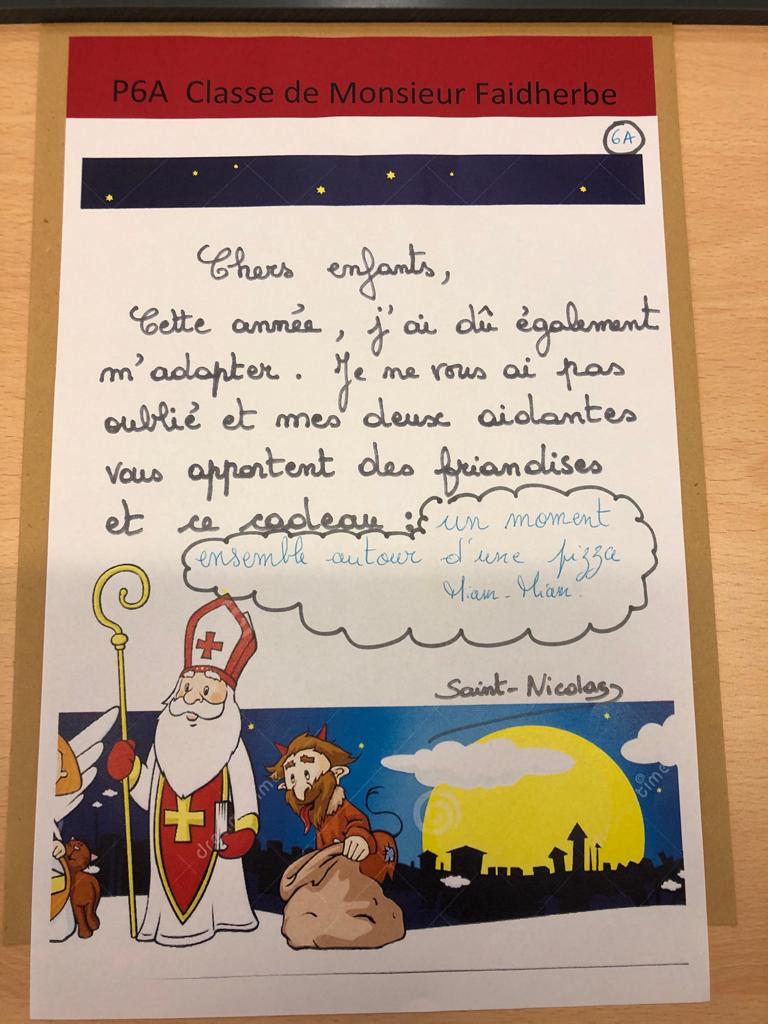 P6A Classe de Monsieur Faidherbe
6A
Chers enfants,
Cette année, j'ai dû également
m'adapter. Je ne vous ai pas
oublié et mes deux aidantes
vous apportent des friandises
et ce cadeau : un moment
ensemble autour d'une pizza
Miam-Miam.
Saint-Nicolas